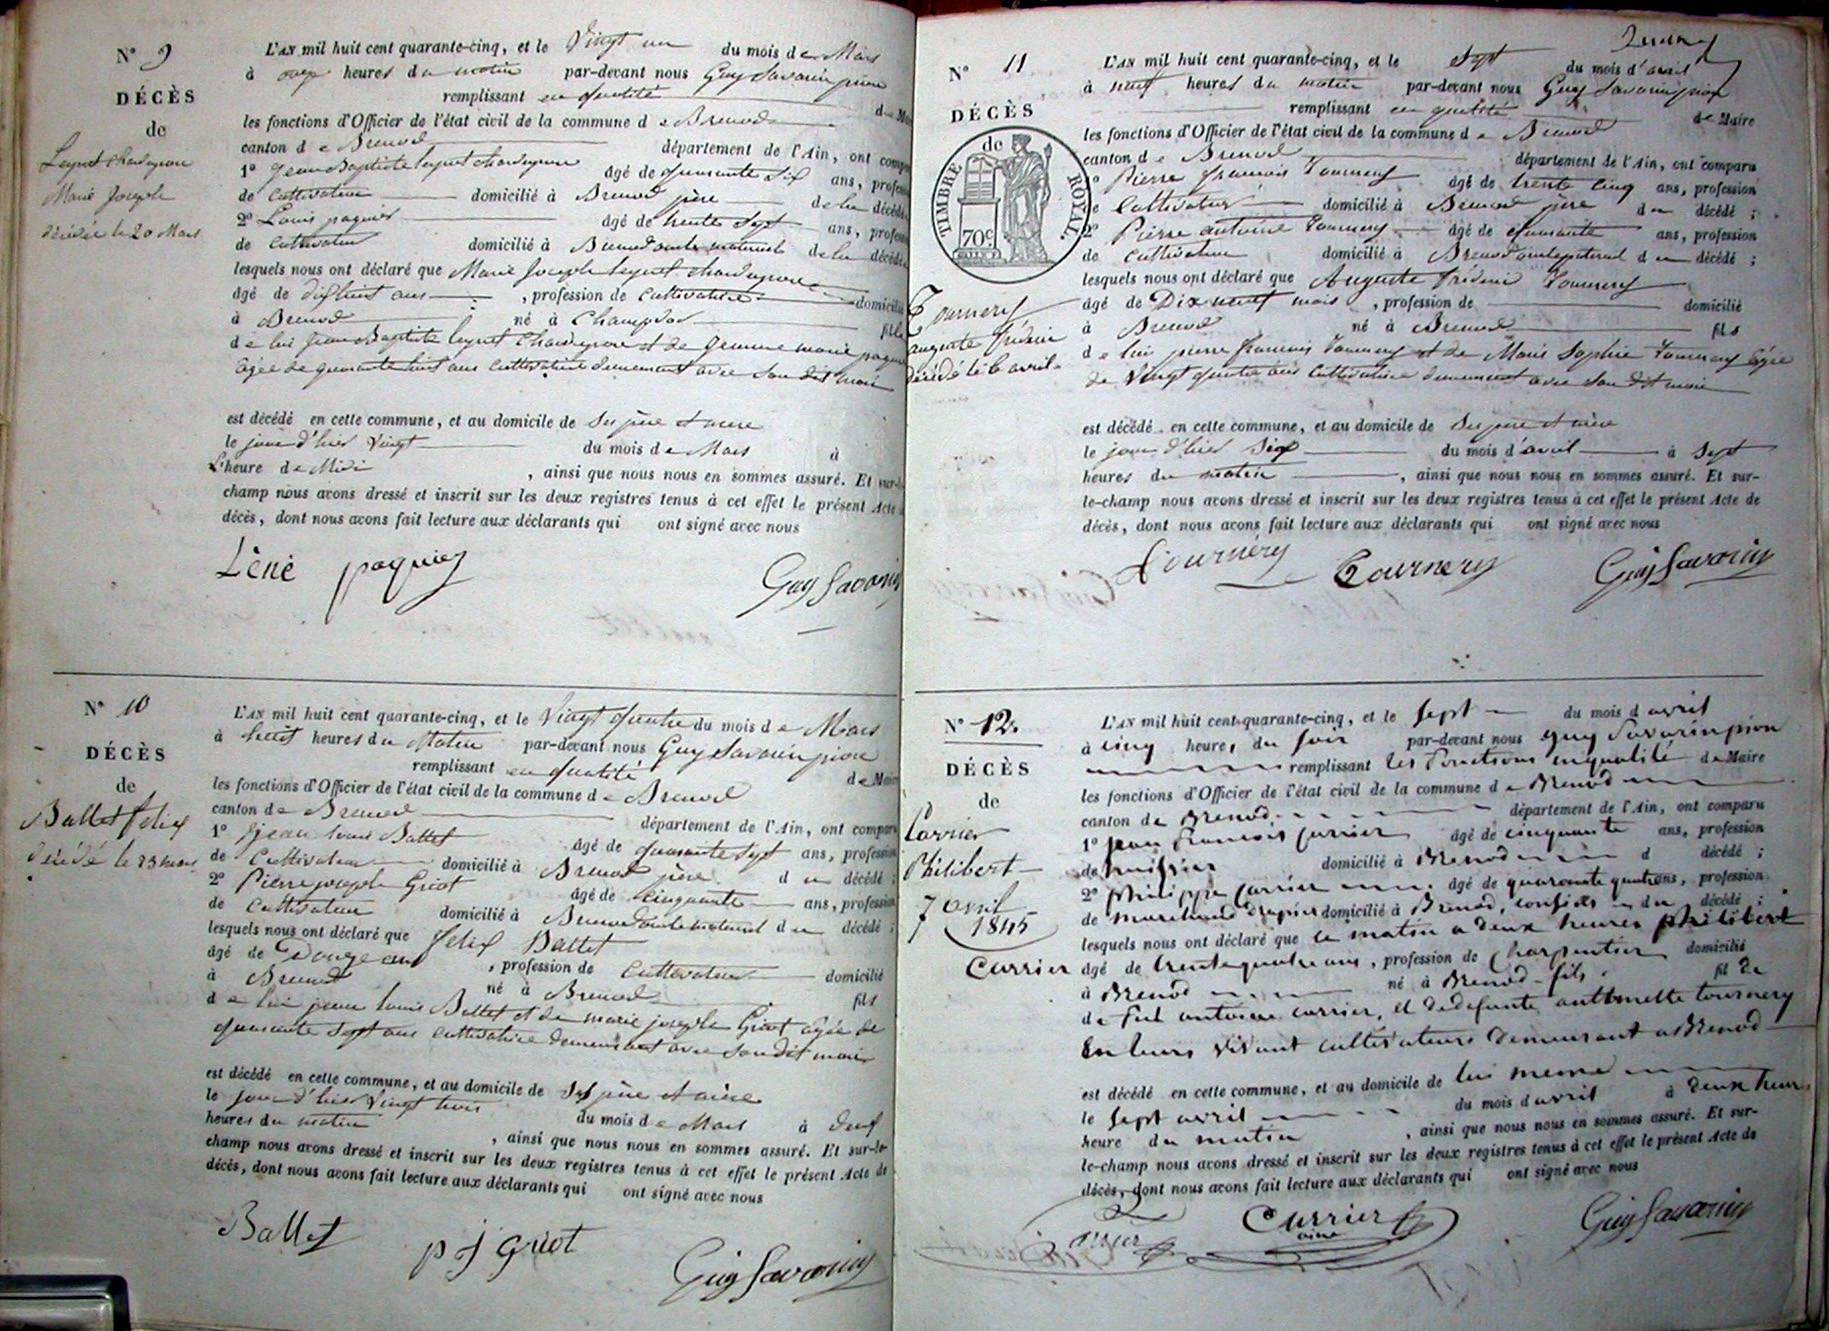 N° 9
DÉCÈS
de
Marie Joseph
décédée le 20 Mars
L'AN mil huit cent quarante-cinq, et le Vingt un du mois de Mars
à onze heures du matin par-devant nous Guy Savarin pion
remplissant en qualité de Maire
les fonctions d'Officier de l'état civil de la commune de Brenod
canton de Brenod département de l'Ain, ont comparu
1° Jean Baptiste âgé de quarante six ans, profession
de Cultivateur domicilié à Brenod père de la décédée
2° Louis paquier âgé de trente sept ans, profession
de Cultivateur domicilié à Brenod oncle maternel de la décédée
lesquels nous ont déclaré que Marie Joseph
âgé de dix huit ans, profession de Cultivatrice domicilié
à Brenod né à Champdor fille
de lui Jean Baptiste et de marie
âgée de quarante huit ans Cultivatrice demeurant avec son dit mari
est décédé en cette commune, et au domicile de Ses père et mère
le jour d'hier Vingt du mois de Mars à
L'heure de Midi, ainsi que nous nous en sommes assuré. Et sur-le-
champ nous avons dressé et inscrit sur les deux registres tenus à cet effet le présent Acte de
décès, dont nous avons fait lecture aux déclarants qui ont signé avec nous
Lêné paquier Guy Savarin
N° 10
DÉCÈS
de
Ballet félix
décédé le 23 mars
L'AN mil huit cent quarante-cinq, et le Vingt quatre du mois de Mars
à huit heures du Matin par-devant nous Guy Savarin pion
remplissant en qualité de Maire
les fonctions d'Officier de l'état civil de la commune de Brenod
canton de Brenod département de l'Ain, ont comparu
1° Jean Louis Ballet âgé de quarante sept ans, profession
de Cultivateur domicilié à Brenod père du décédé ;
2° Pierre joseph Griot âgé de Cinquante ans, profession
de Cultivateur domicilié à Brenod oncle maternel du décédé ;
lesquels nous ont déclaré que félix Ballet
âgé de Douze ans, profession de Cultivateur domicilié
à Brenod né à Brenod fils
de lui jean Louis Ballet et de marie joseph Griot âgée de
quarante sept ans cultivatrice demeurant avec son dit mari
est décédé en cette commune, et au domicile de Ses père et mère
le jour d'hier Vingt trois du mois de Mars à deux
heures du matin, ainsi que nous nous en sommes assuré. Et sur-le-
champ nous avons dressé et inscrit sur les deux registres tenus à cet effet le présent Acte de
décès, dont nous avons fait lecture aux déclarants qui ont signé avec nous
Ballet p j griot Guy Savarin
N° 11
DÉCÈS
de
TIMBRE ROYAL.
70c
Tournery
auguste frédéric
décédé le 6 avril
L'AN mil huit cent quarante-cinq, et le Sept du mois d'avril
à neuf heures du matin par-devant nous Guy Savarin pion
remplissant en qualité de Maire
les fonctions d'Officier de l'état civil de la commune de Brenod
canton de Brenod département de l'Ain, ont comparu
1° Pierre françois Tournery âgé de trente cinq ans, profession
de Cultivateur domicilié à Brenod père du décédé ;
2° Pierre antoine Tournery âgé de quarante ans, profession
de Cultivateur domicilié à Brenod oncle paternel du décédé ;
lesquels nous ont déclaré que Auguste frédéric Tournery
âgé de Dix neuf mois, profession de domicilié
à Brenod né à Brenod fils
de lui pierre françois Tournery et de Marie Sophie Tournery âgée
de Vingt quatre ans Cultivatrice demeurant avec son dit mari
est décédé en cette commune, et au domicile de Ses père et mère
le jour d'hier Six du mois d'avril à Sept
heures du matin, ainsi que nous nous en sommes assuré. Et sur-
le-champ nous avons dressé et inscrit sur les deux registres tenus à cet effet le présent Acte de
décès, dont nous avons fait lecture aux déclarants qui ont signé avec nous
Tournery Tournery Guy Savarin
N° 12.
DÉCÈS
de
Carrier
Philibert
7 avril
1845
Carrier
L'AN mil huit cent quarante-cinq, et le Sept du mois d'avril
à cinq heures du soir par-devant nous guy Savarin pion
remplissant les fonctions en qualité de Maire
les fonctions d'Officier de l'état civil de la commune de Brenod
canton de Brenod département de l'Ain, ont comparu
1° jean francois carrier âgé de cinquante ans, profession
de huissier domicilié à Brenod d décédé ;
2° philippe Carrier âgé de quarante quatre ans, profession
de marchand drapier domicilié à Brenod, cousins du décédé ;
lesquels nous ont déclaré que ce matin a deux heures philibert
âgé de trente quatre ans, profession de Charpentier domicilié
à Brenod né à Brenod fils fil de
de feu antoine carrier, et de defunte anthmette tournery
En leurs vivant cultivateurs demeurant a Brenod
est décédé en cette commune, et au domicile de lui meme
le Sept avril du mois d'avril à deux heures
heure du matin, ainsi que nous nous en sommes assuré. Et sur-
le-champ nous avons dressé et inscrit sur les deux registres tenus à cet effet le présent Acte de
décès, dont nous avons fait lecture aux déclarants qui ont signé avec nous
Carrier Guy Savarin
ainé